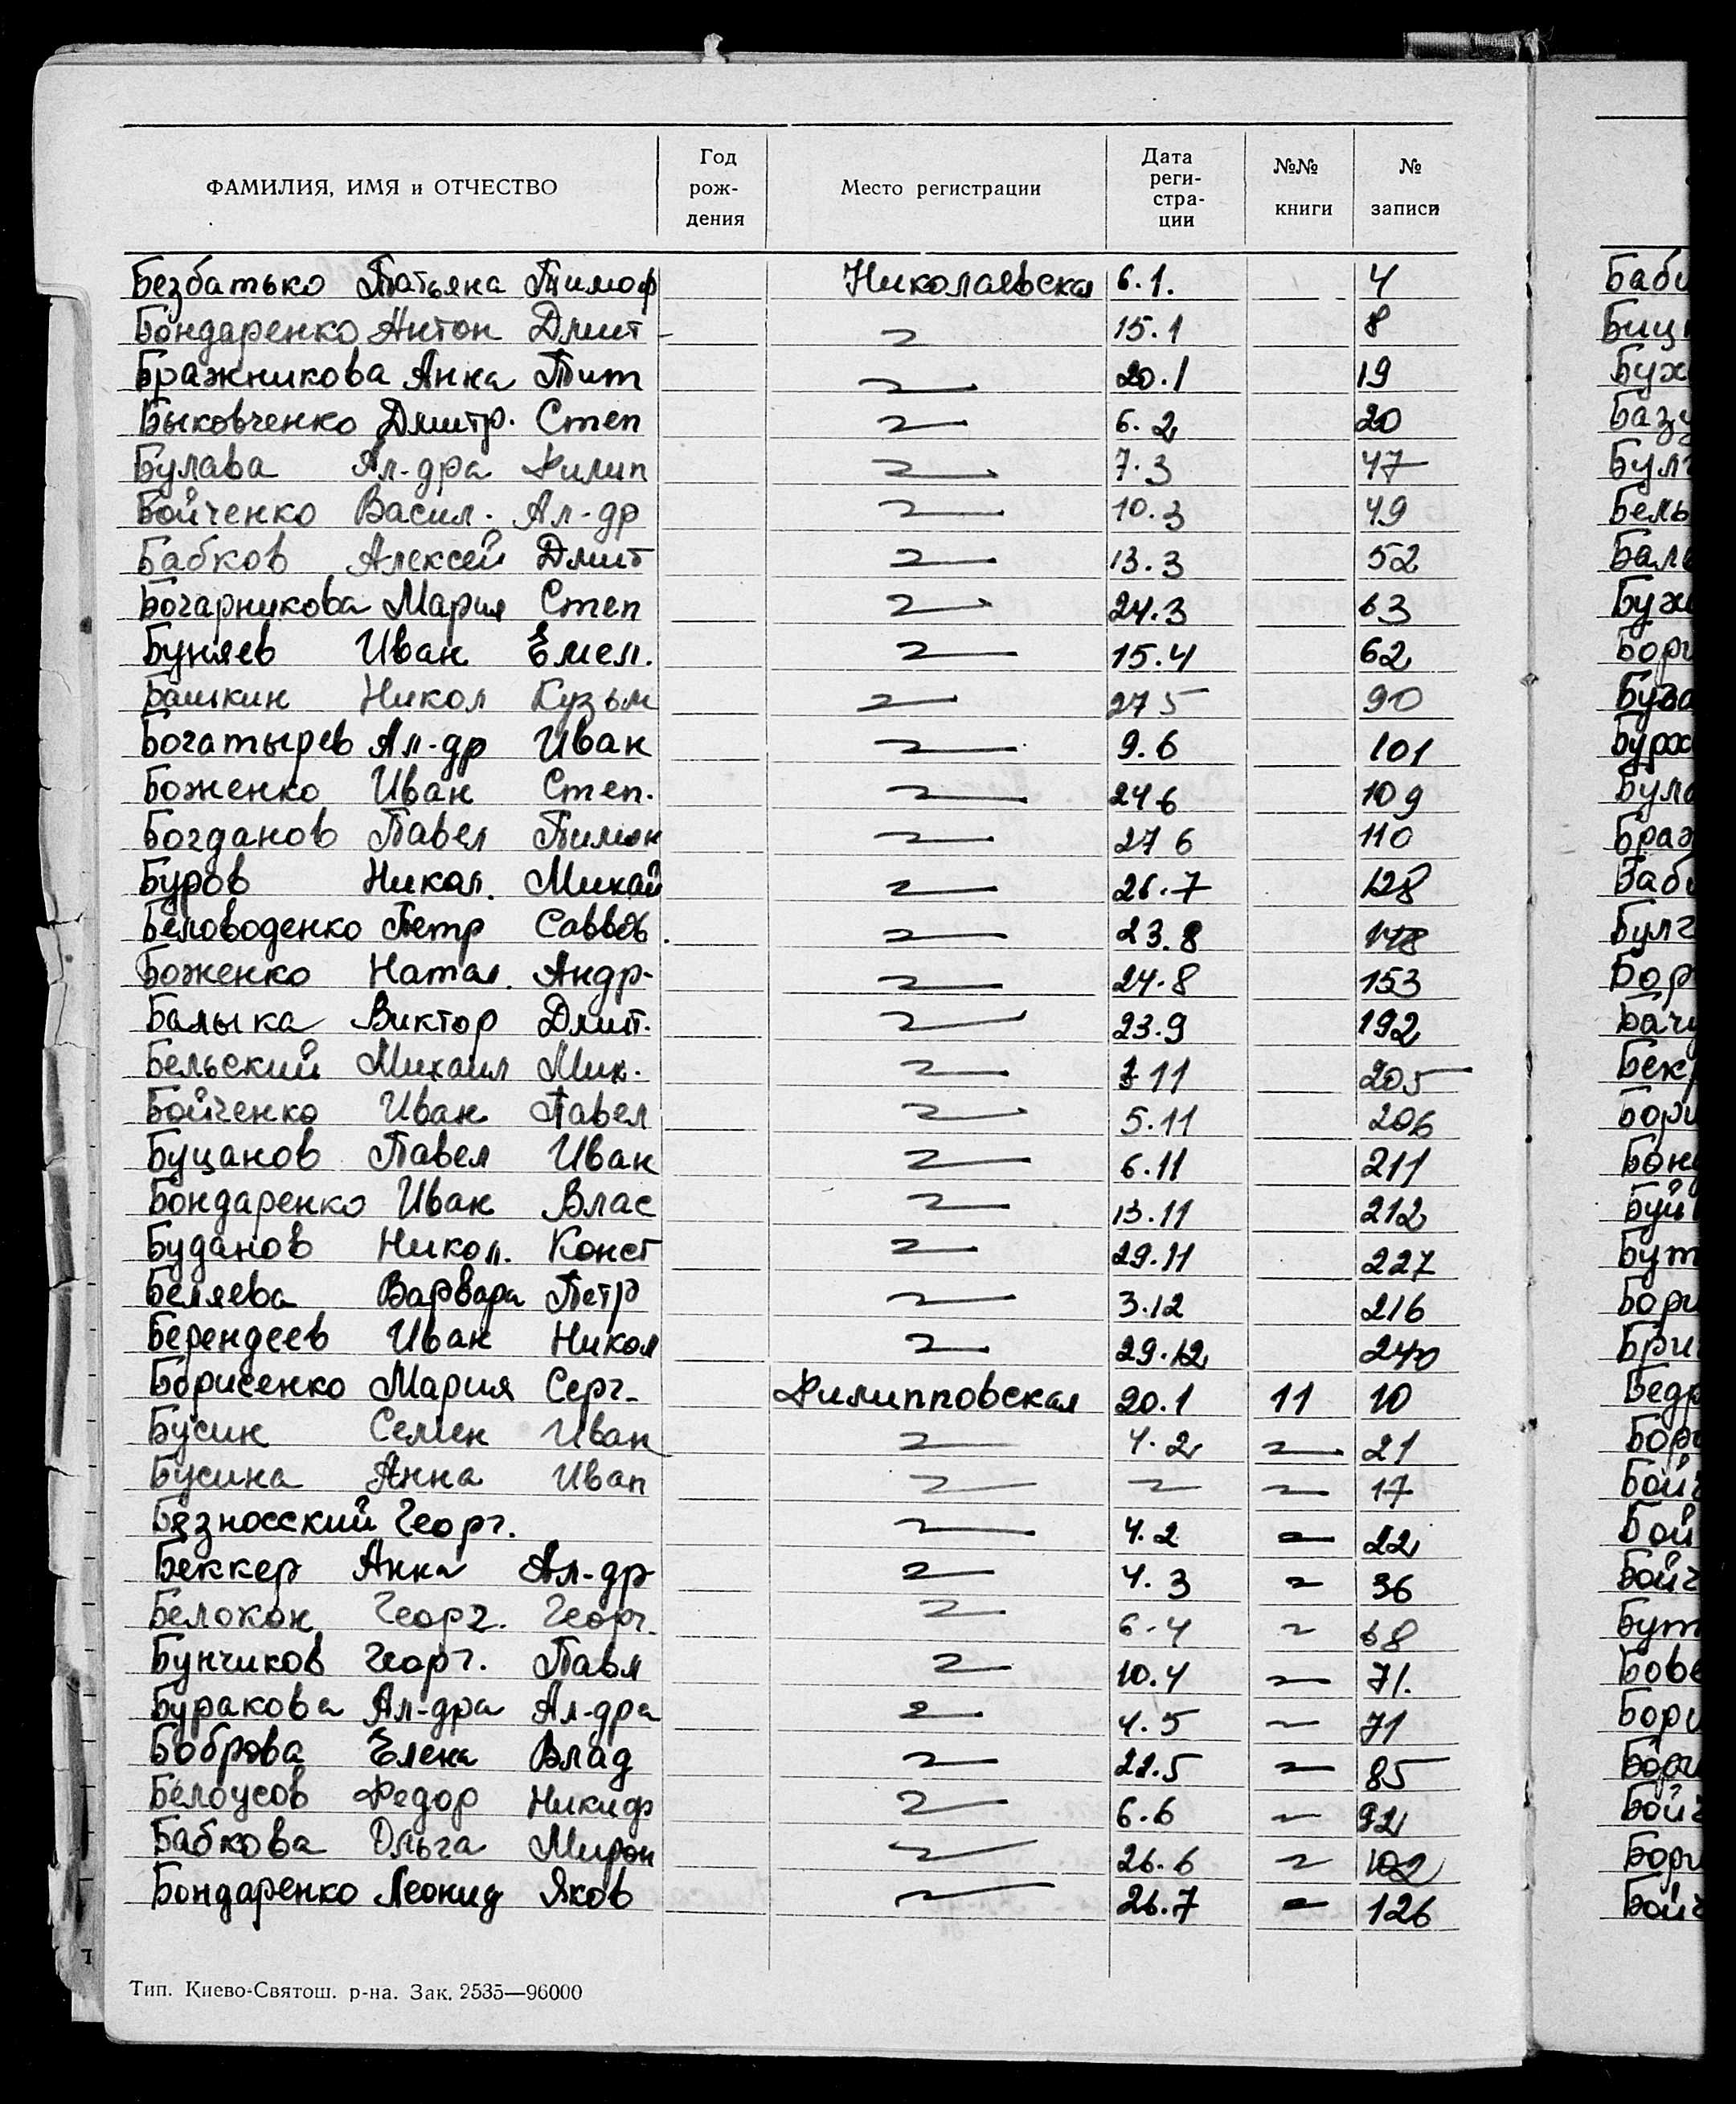 ФАМИЛИЯ, ИМЯ и ОТЧЕСТВО Год рож- дения Место регистрации Дата реги- стра- ции №№ книги № записи
Безбатько Татьяна Тимоф Николаевская 6.1. 4
Бондаренко Антон Дмит - 15.1 8
Бражникова Анна Тит 20.1 19
Быковченко Дмитр. Степ 6.2 20
Булава Ал-дра Филип 7.3 47
Бойченко Васил. Ал-др 10.3 49
Бабков Алексей Дмит 13.3 52
Бочарникова Мария Степ 24.3 63
Буняев Иван Емел. 15.4 62
Башкин Никол Кузьм 27 5 90
Богатырев Ал-др Иван 9.6 101
Боженко Иван Степ. 24 6 109
Богданов Павел Тимон 27 6 110
Буров Никол. Михай 26.7 128
Беловоденко Петр Саввов. 23.8 148
Боженко Натал. Андр- 24.8 153
Балыка Виктор Дмит. 23.9 192
Бельский Михаил Мих. 11 205
Бойченко Иван Павел 5.11 206
Буцанов Павел Иван 6.11 211
Бондаренко Иван Влас 13.11 212
Буданов Никол. Конст 29.11 227
Беляева Варвара Петр 3.12 216
Берендеев Иван Никол 29.12 240
Борисенко Мария Серг- Филипповская 20.1 11 10
Бусик Семен Иван 4.2 21
Бусина Анна Иван 17
Бязносский Георг. 4.2 22
Беккер Анна Ал-др 4.3 36
Белокон Георг. Георг. 6.4 68
Бунчиков Георг. Павл 10.4 71.
Буракова Ал-дра Ал-дра 4.5 71
Боброва Елена Влад 22.5 85
Белоусов Федор Никиф 6.6 92
Бабкова Ольга Мирон 26.6 102
Бондаренко Леонид Яков 26.7 126
Тип. Киево-Святош. р-на. Зак. 2535—96000